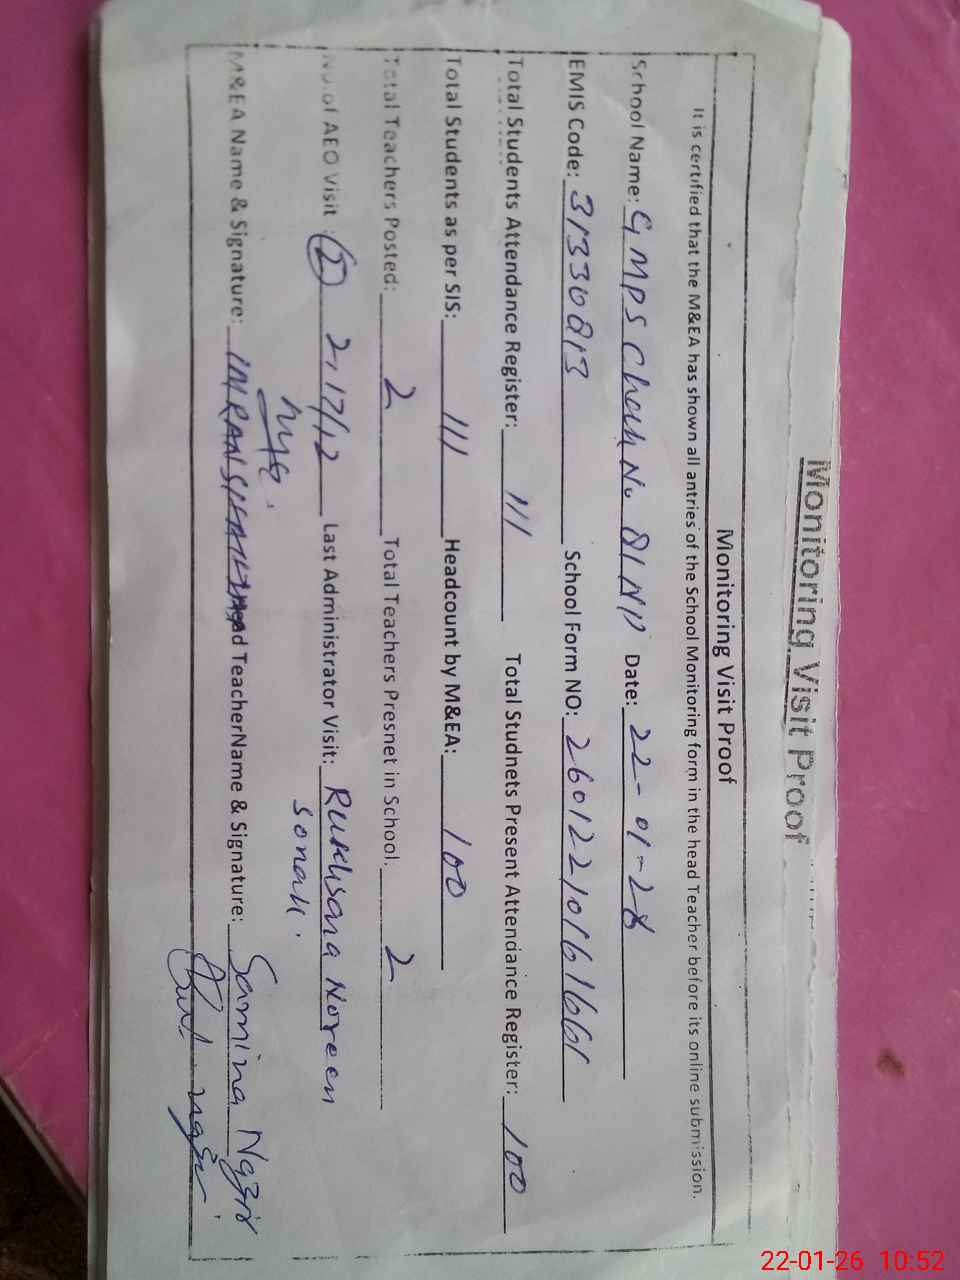 Monitoring Visit Proof
Monitoring Visit Proof
It is certified that the M&EA has shown all antries of the School Monitoring form in the head Teacher before its online submission.
School Name: GMPS Chak No 81 NP Date: 22-01-26
EMIS Code: 31330813 School Form NO: 26012210161661
Total Students Attendance Register: 111 Total Studnets Present Attendance Register: 100
Total Students as per SIS: 111 Headcount by M&EA: 100
Total Teachers Posted: 2 Total Teachers Presnet in School: 2
No.of AEO Visit : 2 2, 17/12 Last Administrator Visit: Rukhsana Noreen
Sonak.
M&EA Name & Signature: IMRAN Head TeacherName & Signature: Samina Nazir
22-01-26 10:52